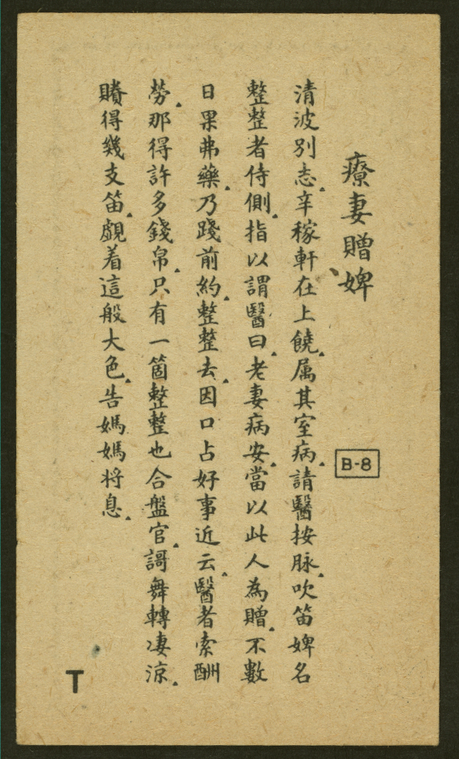 療妻贈婢
B-8
清波別志．辛稼軒在上饒．属其室病．請醫按脉．吹笛婢名
整整者侍側．指以謂醫曰．老妻病安．當以此人為贈．不數
日果弗藥．乃踐前約．整整去．因口占好事近云．醫者索酬
勞．那得許多錢帛．只有一箇整整也．合盤官．謌舞轉凄涼．
賸得幾支笛．覷着這般大色．告媽媽将息．
T